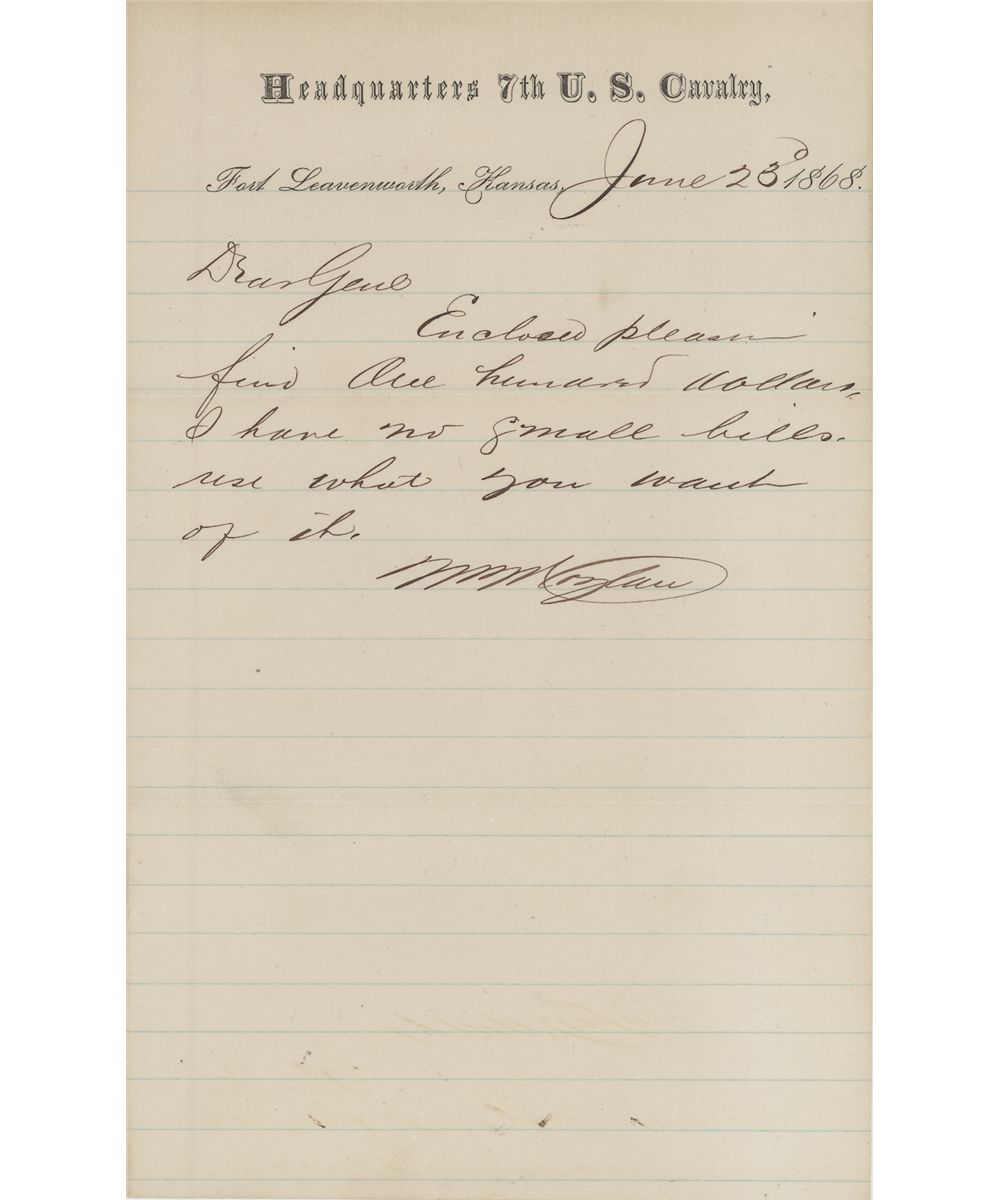 Headquarters 7th U. S. Cavalry,
Fort Leavenworth, Kansas, June 23d 1868.
Dear Gene
Enclosed please
find One hundred dollars.
I have no small bills.
use what you want
of it.